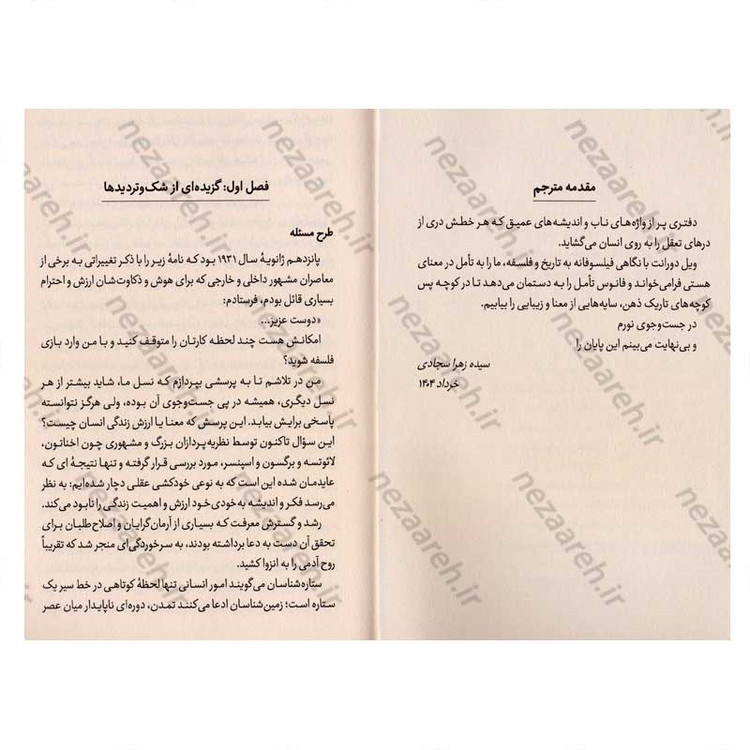 مقدمه مترجم
دفتری پر از واژه‌های ناب و اندیشه‌های عمیق که هر خطش دری از
درهای تعقل را به روی انسان می‌گشاید.
ویل دورانت با نگاهی فیلسوفانه به تاریخ و فلسفه، ما را به تأمل در معنای
هستی فرامی‌خواند و فانوس تأمل را به دستمان می‌دهد تا در کوچه پس
کوچه‌های تاریک ذهن، سایه‌هایی از معنا و زیبایی را بیابیم.
در جست‌وجوی نورم
و بی‌نهایت می‌بینم این پایان را
سیده زهرا سجادی
خرداد ۱۴۰۴
فصل اول: گزیده‌ای از شک‌وتردیدها
طرح مسئله
پانزدهم ژانویهٔ سال ۱۹۳۱ بود که نامهٔ زیر را با ذکر تغییراتی به برخی از
معاصران مشهور داخلی و خارجی که برای هوش و ذکاوت‌شان ارزش و احترام
بسیاری قائل بودم، فرستادم:
«دوست عزیز...
امکانش هست چند لحظه کارتان را متوقف کنید و با من وارد بازی
فلسفه شوید؟
من در تلاشم تا به پرسشی بپردازم که نسل ما، شاید بیشتر از هر
نسل دیگری، همیشه در پی جست‌وجوی آن بوده، ولی هرگز نتوانسته
پاسخی برایش بیابد. این پرسش که معنا یا ارزش زندگی انسان چیست؟
این سؤال تاکنون توسط نظریه‌پردازان بزرگ و مشهوری چون اخناتون،
لائوتسه و برگسون و اسپنسر، مورد بررسی قرار گرفته و تنها نتیجه‌ای که
عایدمان شده این است که به نوعی خودکشی عقلی دچار شده‌ایم: به نظر
می‌رسد فکر و اندیشه به خودی خود ارزش و اهمیت زندگی را نابود می‌کند.
رشد و گسترش معرفت که بسیاری از آرمان‌گرایان و اصلاح‌طلبان برای
تحقق آن دست به دعا برداشته بودند، به سرخوردگی‌ای منجر شد که تقریباً
روح آدمی را به انزوا کشید.
ستاره‌شناسان می‌گویند امور انسانی تنها لحظهٔ کوتاهی در خط سیر یک
ستاره است؛ زمین‌شناسان ادعا می‌کنند تمدن، دوره‌ای ناپایدار میان عصر
nezaareh.ir
nezaareh.ir
nezaareh.ir
nezaareh.ir
nezaareh.ir
nezaareh.ir
nezaareh.ir
nezaareh.ir